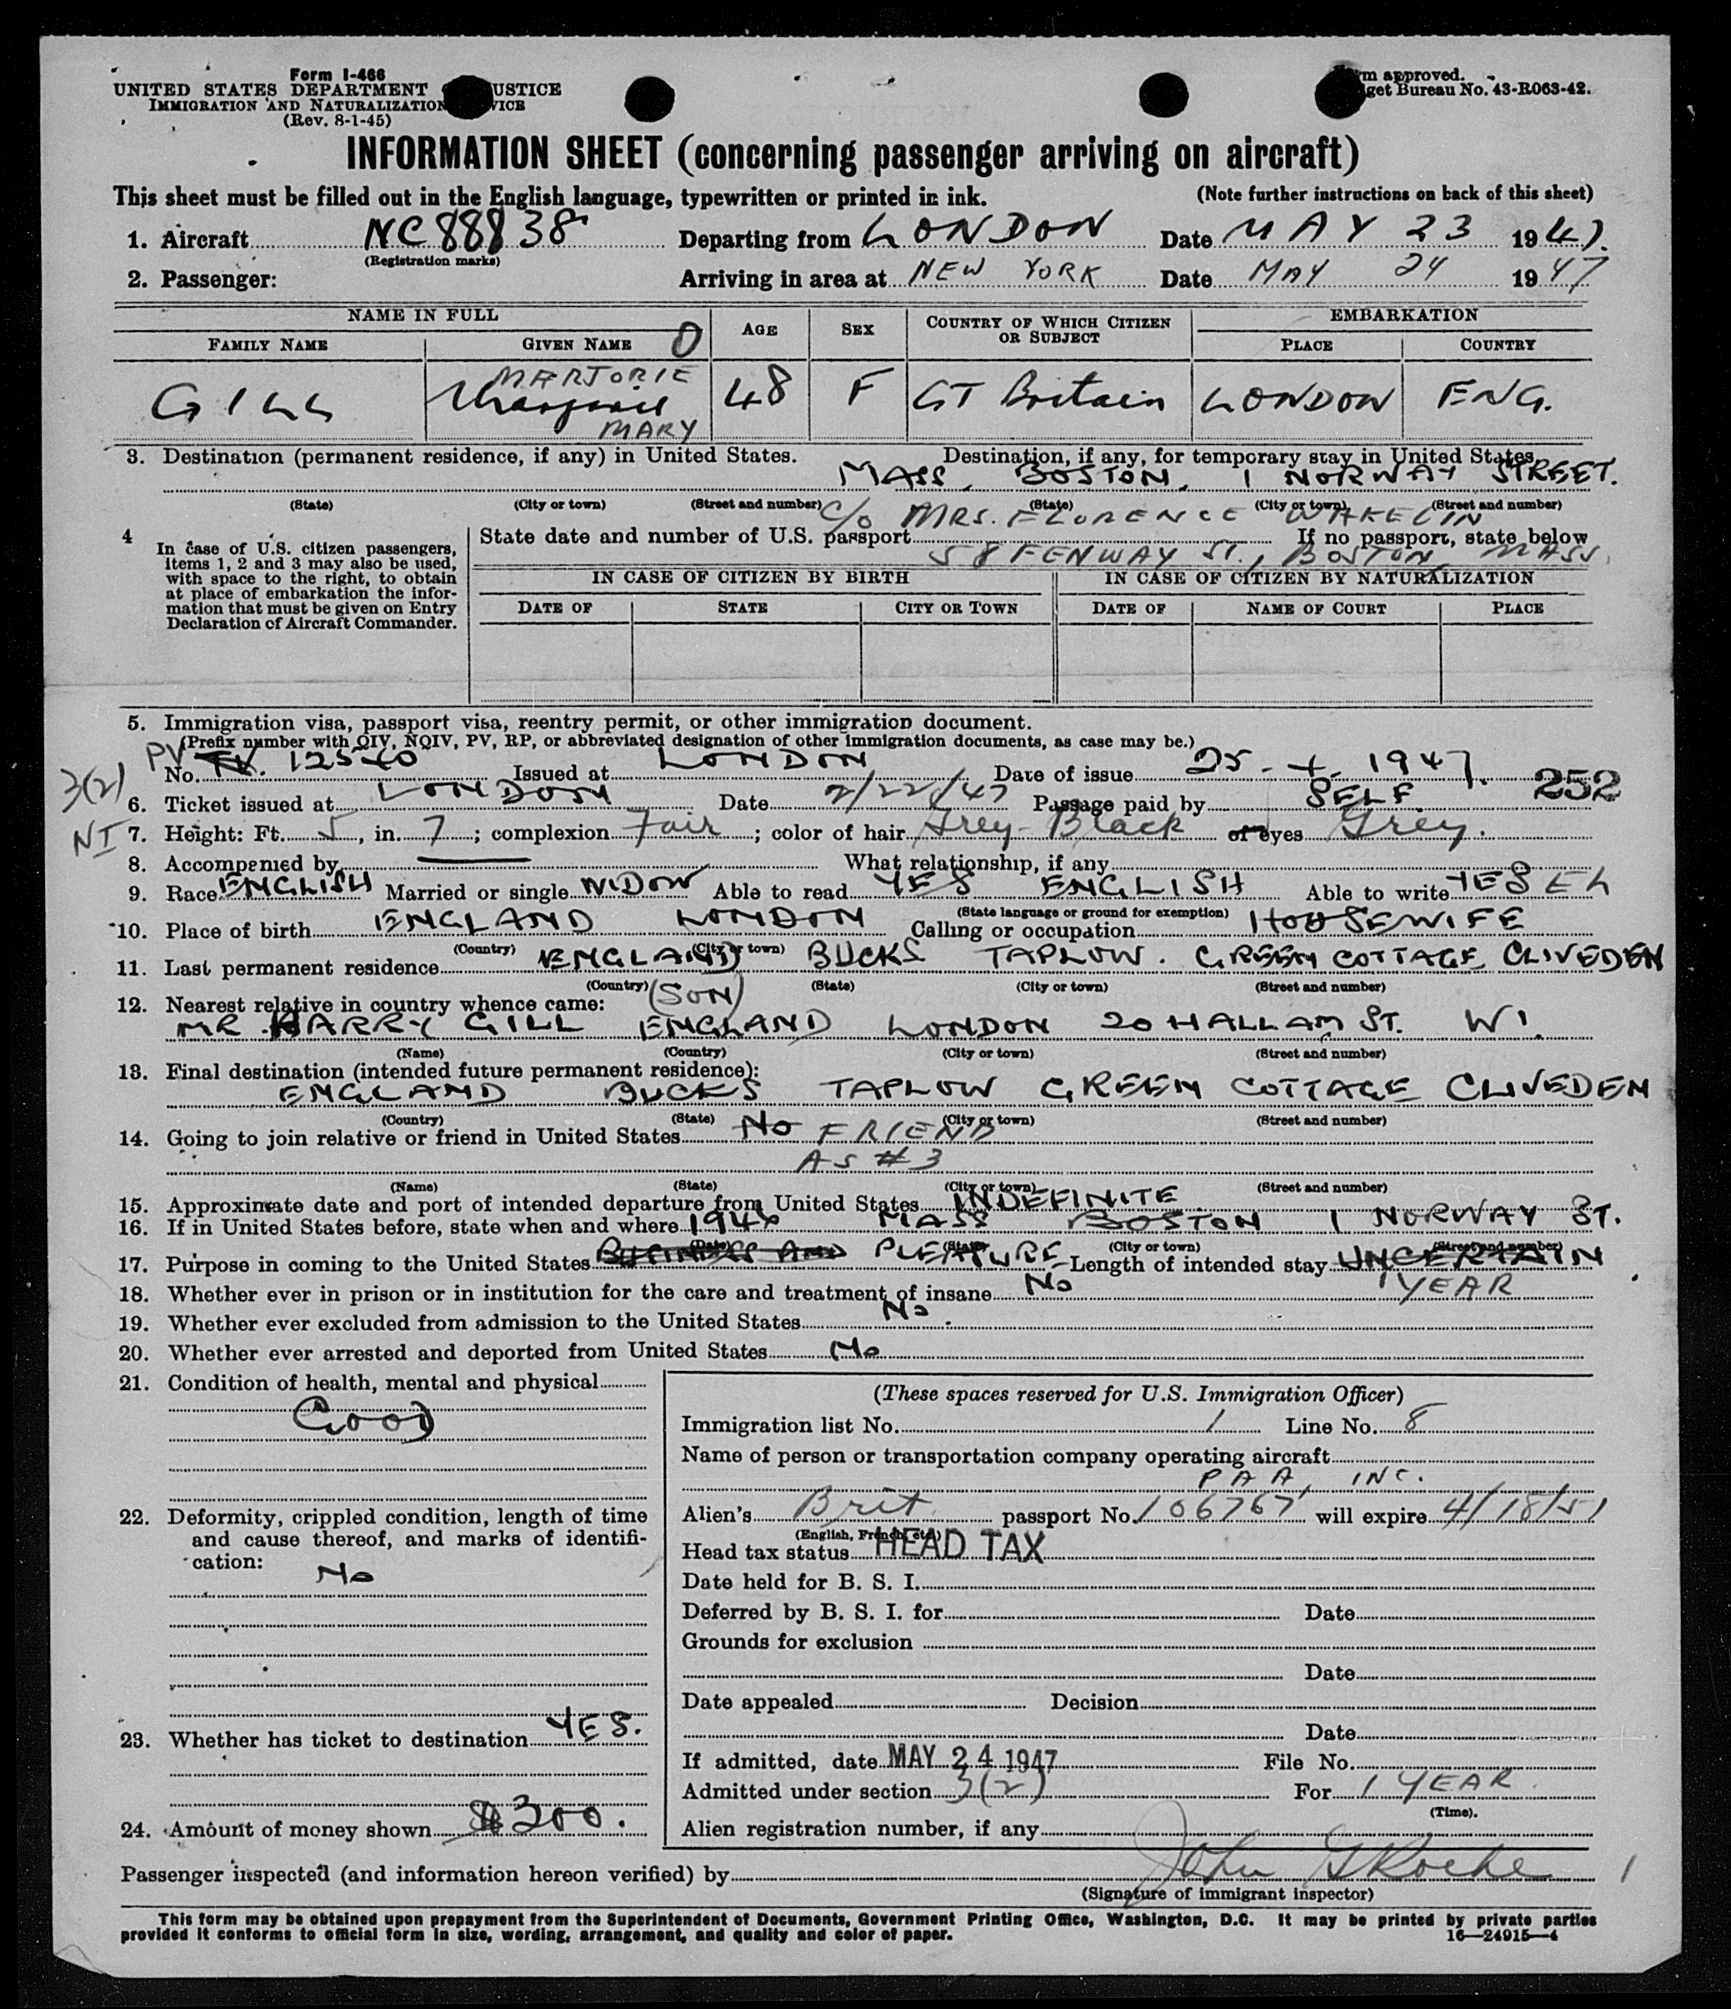 Form I-466
UNITED STATES DEPARTMENT USTICE
IMMIGRATION AND NATURALIZATION VICE
(Rev. 8-1-45)
m approved.
get Bureau No. 43-R063-42.
INFORMATION SHEET (concerning passenger arriving on aircraft)
This sheet must be filled out in the English language, typewritten or printed in ink. (Note further instructions on back of this sheet)
1. Aircraft NC88838 Departing from LONDON Date MAY 23 1947.
(Registration marks)
2. Passenger: Arriving in area at NEW YORK Date MAY 24 1947
NAME IN FULL AGE SEX COUNTRY OF WHICH CITIZEN OR SUBJECT EMBARKATION
FAMILY NAME GIVEN NAME 0 PLACE COUNTRY
MARJORIE
GILL 48 F GT Britain LONDON ENG.
MARY
3. Destination (permanent residence, if any) in United States. Destination, if any, for temporary stay in United States
MASS. BOSTON. 1 NORWAY STREET.
(State) (City or town) (Street and number) (State) (City or town) (Street and number)
C/O MRS. FLORENCE WAKELIN
4 In case of U.S. citizen passengers, items 1, 2 and 3 may also be used, with space to the right, to obtain at place of embarkation the information that must be given on Entry Declaration of Aircraft Commander.
State date and number of U.S. passport If no passport, state below
58 FENWAY ST., BOSTON, MASS.
IN CASE OF CITIZEN BY BIRTH IN CASE OF CITIZEN BY NATURALIZATION
DATE OF STATE CITY OR TOWN DATE OF NAME OF COURT PLACE
5. Immigration visa, passport visa, reentry permit, or other immigration document.
(Prefix number with QIV, NQIV, PV, RP, or abbreviated designation of other immigration documents, as case may be.)
PV
No. 12540 Issued at LONDON Date of issue 25-4-1947. 252
3(2)
6. Ticket issued at LONDON Date 2/22/47 Passage paid by SELF.
NI 7. Height: Ft. 5, in. 7; complexion Fair; color of hair Grey-Black of eyes Grey.
8. Accompanied by What relationship, if any
9. Race ENGLISH Married or single WIDOW Able to read YES ENGLISH Able to write YES EL
(State language or ground for exemption)
10. Place of birth ENGLAND LONDON Calling or occupation HOUSEWIFE
(Country) (City or town)
11. Last permanent residence ENGLAND BUCKS TAPLOW. GREEN COTTAGE CLIVEDEN
(Country) (State) (City or town) (Street and number)
12. Nearest relative in country whence came: (SON)
MR. HARRY GILL ENGLAND LONDON 20 HALLAM ST. W1.
(Name) (Country) (City or town) (Street and number)
13. Final destination (intended future permanent residence):
ENGLAND BUCKS TAPLOW GREEN COTTAGE CLIVEDEN
(Country) (State) (City or town) (Street and number)
14. Going to join relative or friend in United States NO FRIEND
AS #3
(Name) (State) (City or town) (Street and number)
15. Approximate date and port of intended departure from United States INDEFINITE
16. If in United States before, state when and where 1946 MASS BOSTON 1 NORWAY ST.
(Date) (State) (City or town) (Street and number)
17. Purpose in coming to the United States BUSINESS AND PLEASURE Length of intended stay UNCERTAIN
1 YEAR
18. Whether ever in prison or in institution for the care and treatment of insane No
19. Whether ever excluded from admission to the United States No.
20. Whether ever arrested and deported from United States No
21. Condition of health, mental and physical
GOOD
22. Deformity, crippled condition, length of time and cause thereof, and marks of identification:
No
23. Whether has ticket to destination YES.
24. Amount of money shown $300.
(These spaces reserved for U.S. Immigration Officer)
Immigration list No. 1 Line No. 8
Name of person or transportation company operating aircraft
PAA, INC.
Alien's Brit. passport No. 106767 will expire 4/18/51
(English, French, etc.)
Head tax status HEAD TAX
Date held for B. S. I.
Deferred by B. S. I. for Date
Grounds for exclusion
Date
Date appealed Decision
Date
If admitted, date MAY 24 1947 File No.
Admitted under section 3(2) For 1 YEAR.
(Time).
Alien registration number, if any
Passenger inspected (and information hereon verified) by John G Roche 1
(Signature of immigrant inspector)
This form may be obtained upon prepayment from the Superintendent of Documents, Government Printing Office, Washington, D.C. It may be printed by private parties
provided it conforms to official form in size, wording, arrangement, and quality and color of paper. 16—24915—4